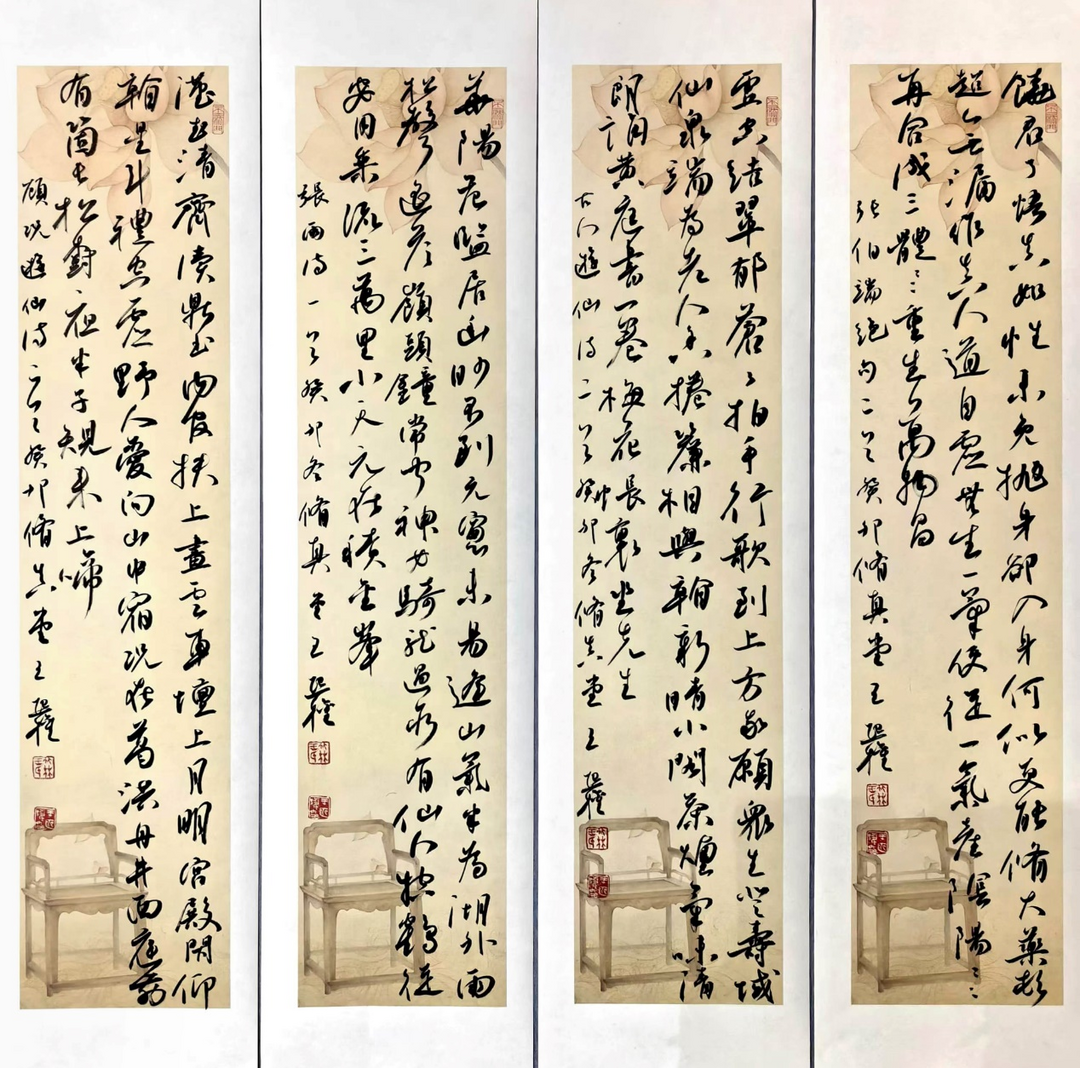 饒君了悟真如性未免抛身卻入身何似更能脩大藥頓
超無漏作真人道自虛無生一氣便從一氣產陰陽〻〻
再合成三體〻〻重生萬物昌
張伯端絕句二首癸卯脩真堂王
靈山結翠郁蒼〻拍手行歌到上方敬願衆生登壽域
仙泉端為老人香捲簾相與看新晴小閣茶煙氣味清
朗誦黃庭書一卷梅花長裏坐先生
古人遊仙詩二首癸卯冬脩真堂王
華陽范監居幽眇時不到元窗未易逢山氣半為湖外雨
松聲遙答嶺頭鐘常聞神女騎龍過亦有仙人控鶴從
安用乘流三萬里小天元在積金峯
張雨詩一首癸卯冬脩真堂王
清齋讀鼎書內官扶上畫雲車壇上月明宮殿閉仰
看星斗禮空虛野人愛向山中宿況在葛洪丹井西庭前
有箇長松樹夜半子規來上啼
顧況遊仙詩二首癸卯脩真堂王